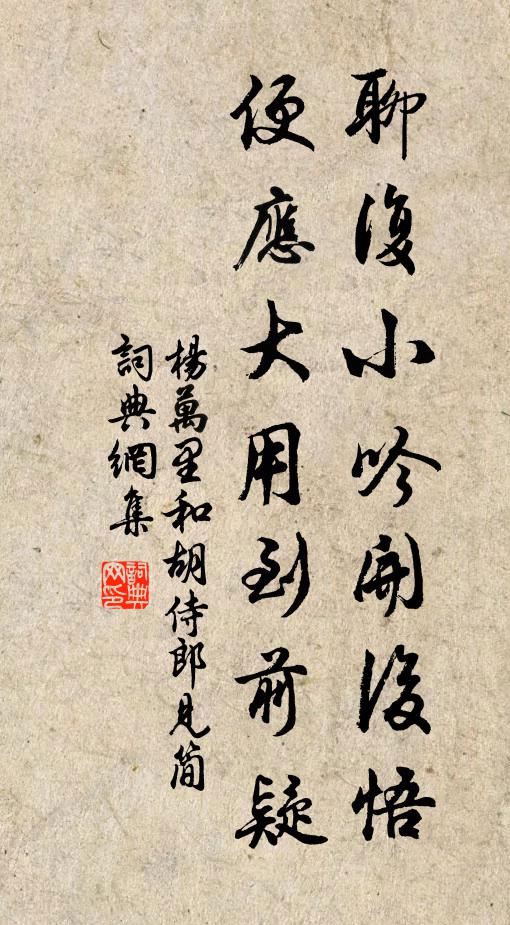 聊復小吟開後悟
便應大用到前疑
楊萬里和胡侍郎見簡
詞典網集
詞典网印